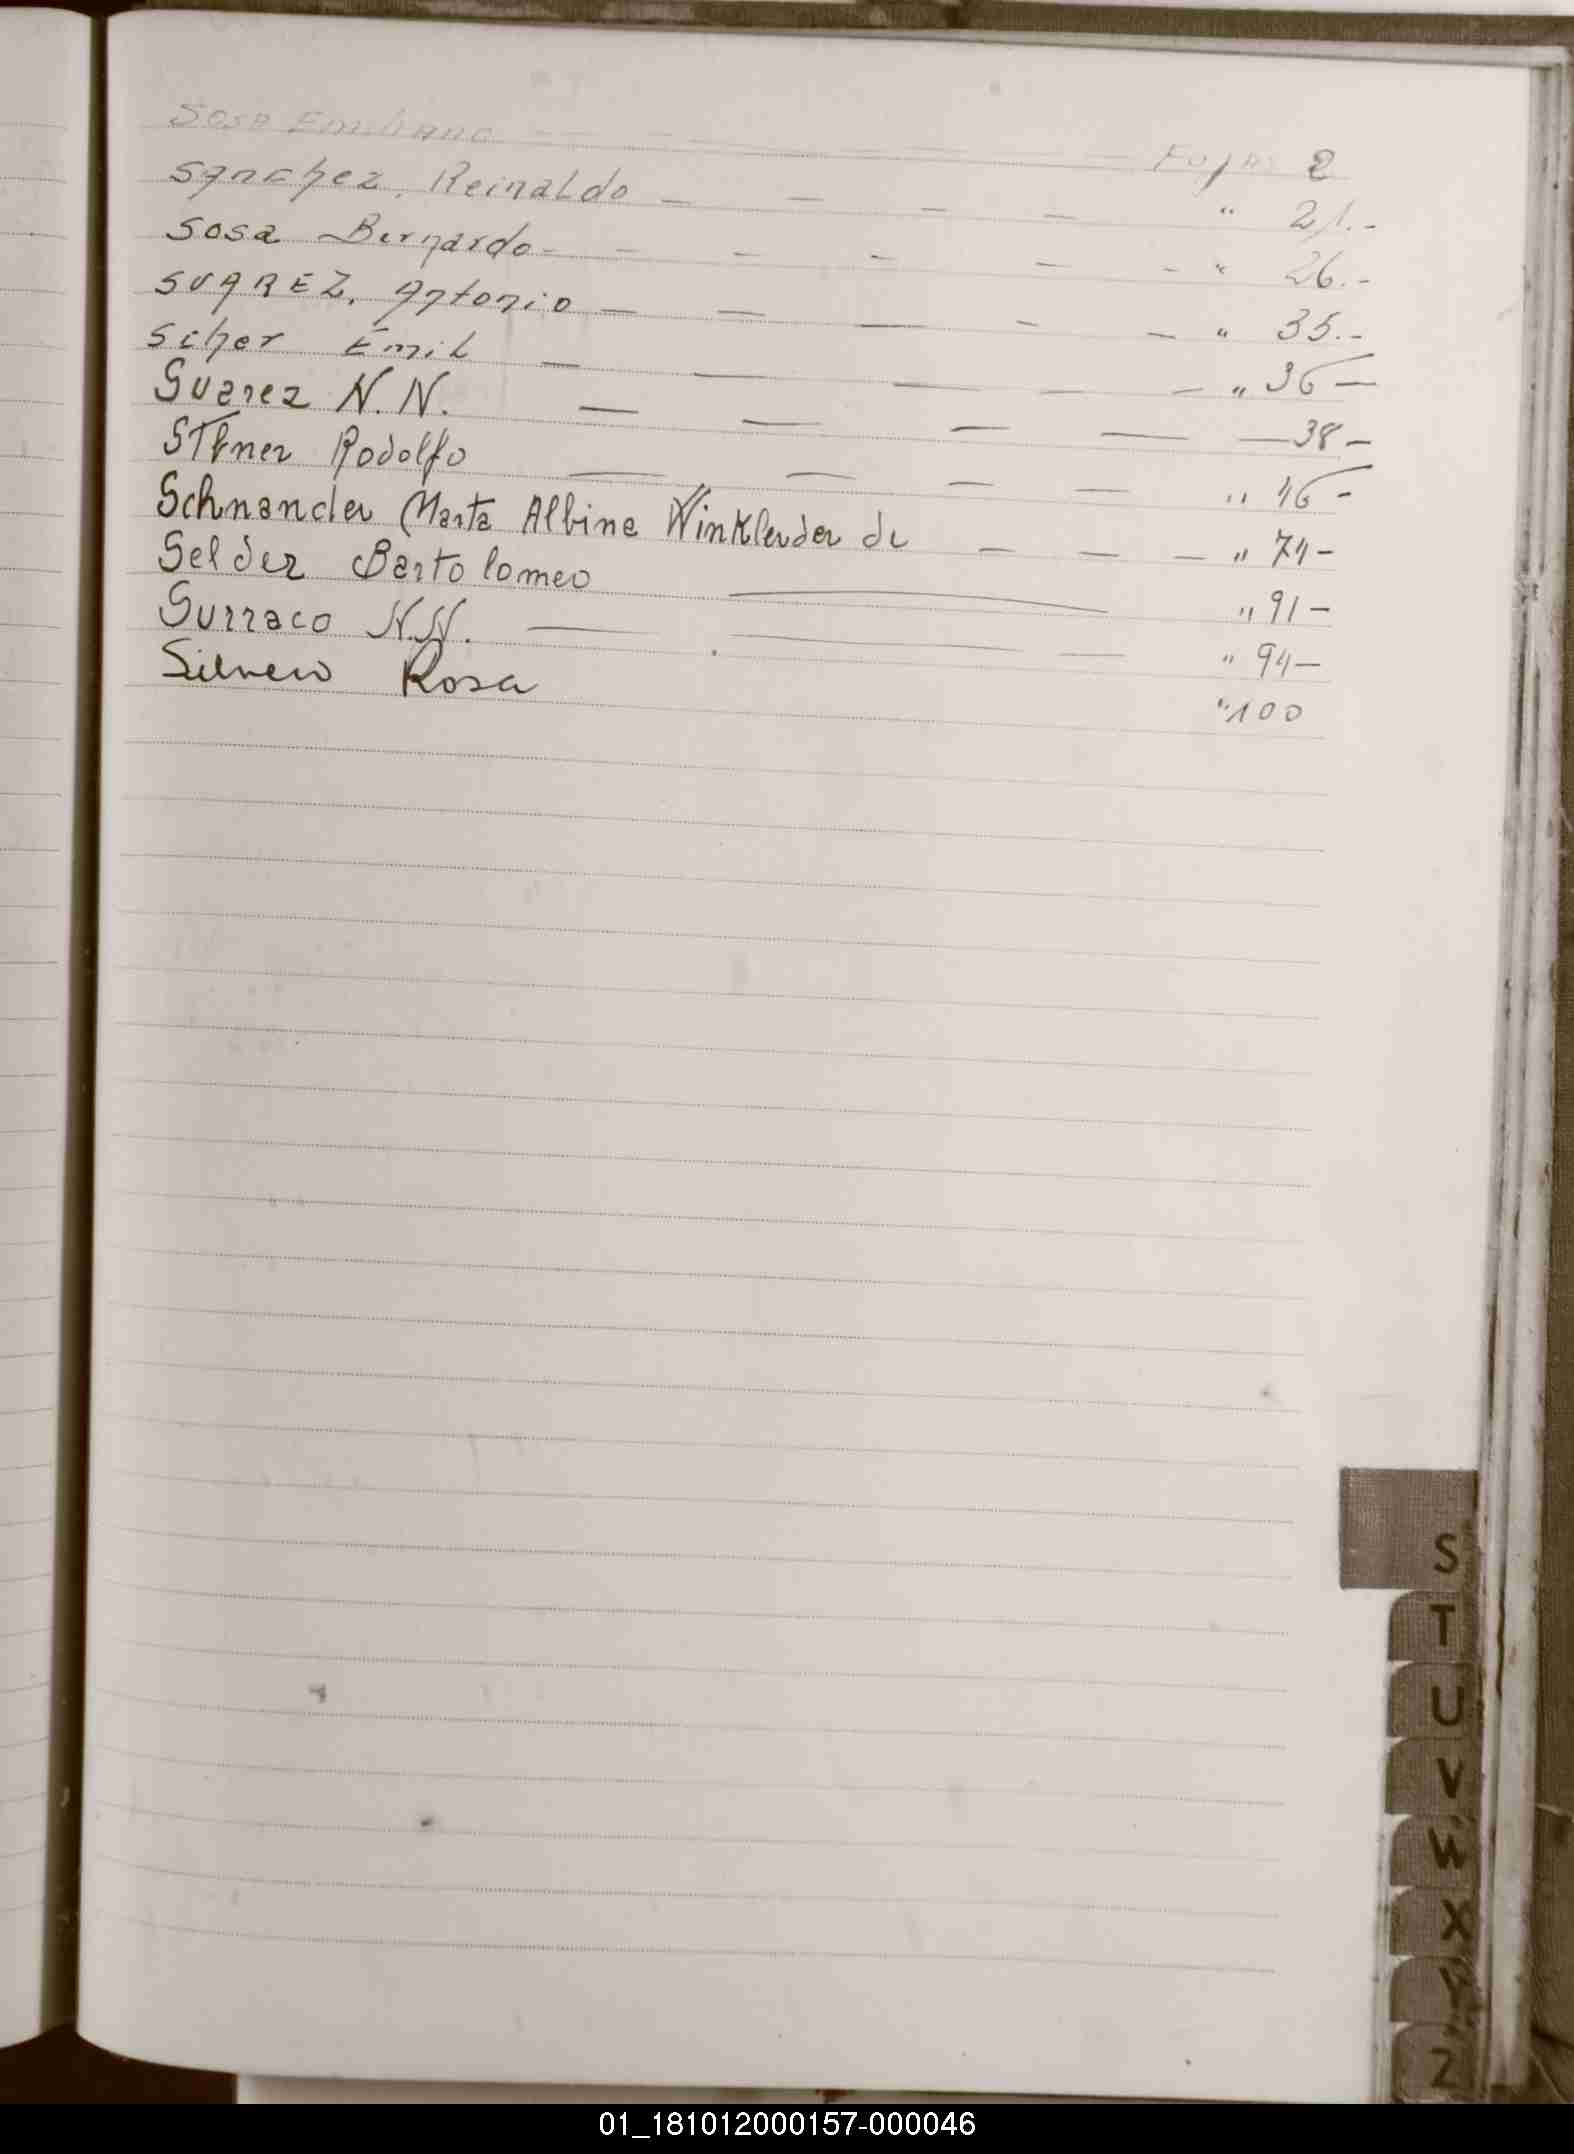 Sosa Emiliano - - - - Fojas 2
Sanchez, Reinaldo - - - - " 21.-
Sosa Bernardo - - - - - - " 26.-
SUAREZ, Antonio - - - - - " 35.-
Scher Emil - - - - - " 36 -
Suarez N. N. - - - - - 38 -
Rodolfo - - - - " 46 -
Schnander Marta Albina Winklender de - - - " 74 -
Selder Bartolomeo - " 91 -
Surraco N.N. - - - " 94 -
Silverio Rosa " 100
S
T
U
V
W
X
Y
Z
01_181012000157-000046